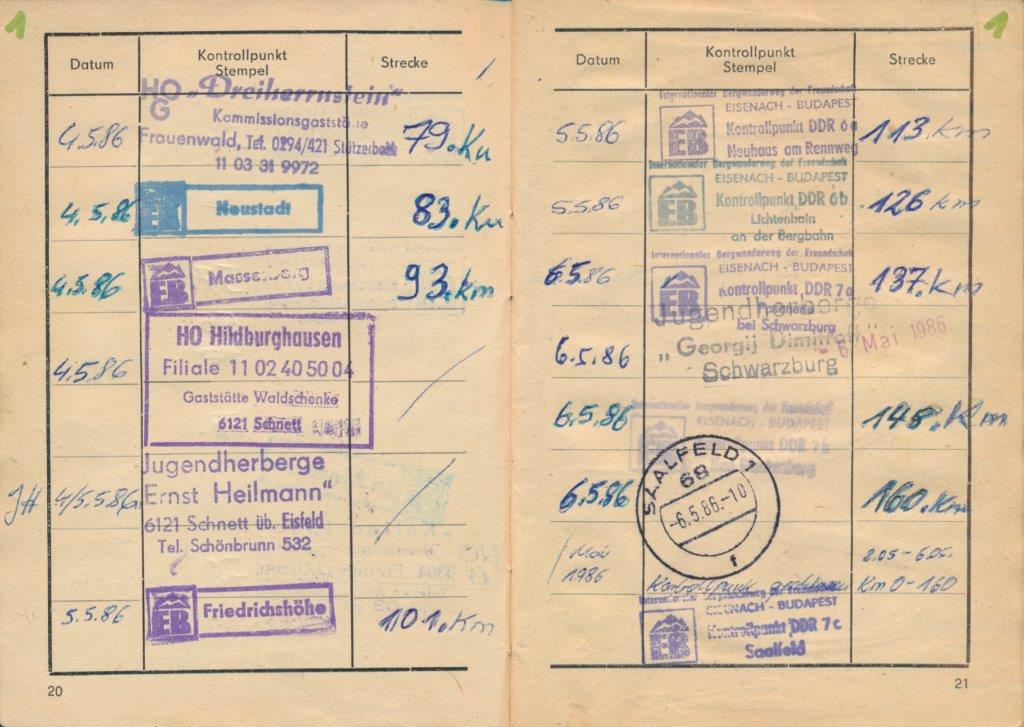 1
Datum Kontrollpunkt Stempel Strecke
HO G „Dreiherrnstein"
Kommissionsgaststätte
4.5.86 Frauenwald, Tel. 0294/421 Stützerbach 79.Km
11 03 31 9972
4.5.86 EB Neustadt 83.Km
4.5.86 EB Masserberg 93.km
HO Hildburghausen
4.5.86 Filiale 11 02 40 50 04
Gaststätte Waldschenke
6121 Schnett
Jugendherberge
JH 4/5.5.86 „Ernst Heilmann"
6121 Schnett üb. Eisfeld
Tel. Schönbrunn 532
5.5.86 EB Friedrichshöhe 101.Km
20
1
Datum Kontrollpunkt Stempel Strecke
Internationaler Bergwanderweg der Freundschaft
EISENACH - BUDAPEST
5.5.86 EB Kontrollpunkt DDR 6a 113.Km
Neuhaus am Rennweg
Internationaler Bergwanderweg der Freundschaft
EISENACH - BUDAPEST
5.5.86 EB Kontrollpunkt DDR 6b 126 km
Lichtenhain
an der Bergbahn
Internationaler Bergwanderweg der Freundschaft
EISENACH - BUDAPEST
6.5.86 EB Kontrollpunkt DDR 7a 137.Km
bei Schwarzburg
Jugendherberge
6.5.86 „Georgij Dimitroff" - 6. Mai 1986
Schwarzburg
Internationaler Bergwanderweg der Freundschaft
EISENACH - BUDAPEST
6.5.86 EB Kontrollpunkt DDR 7b 148.Km
SAALFELD 1
68
6.5.86 -6.5.86.-10 160.Km
f
Mai 1986 Kontrollpunkt 2.05-6.05. Km 0-160
Internationaler Bergwanderweg der Freundschaft
EISENACH - BUDAPEST
EB Kontrollpunkt DDR 7c
Saalfeld
21